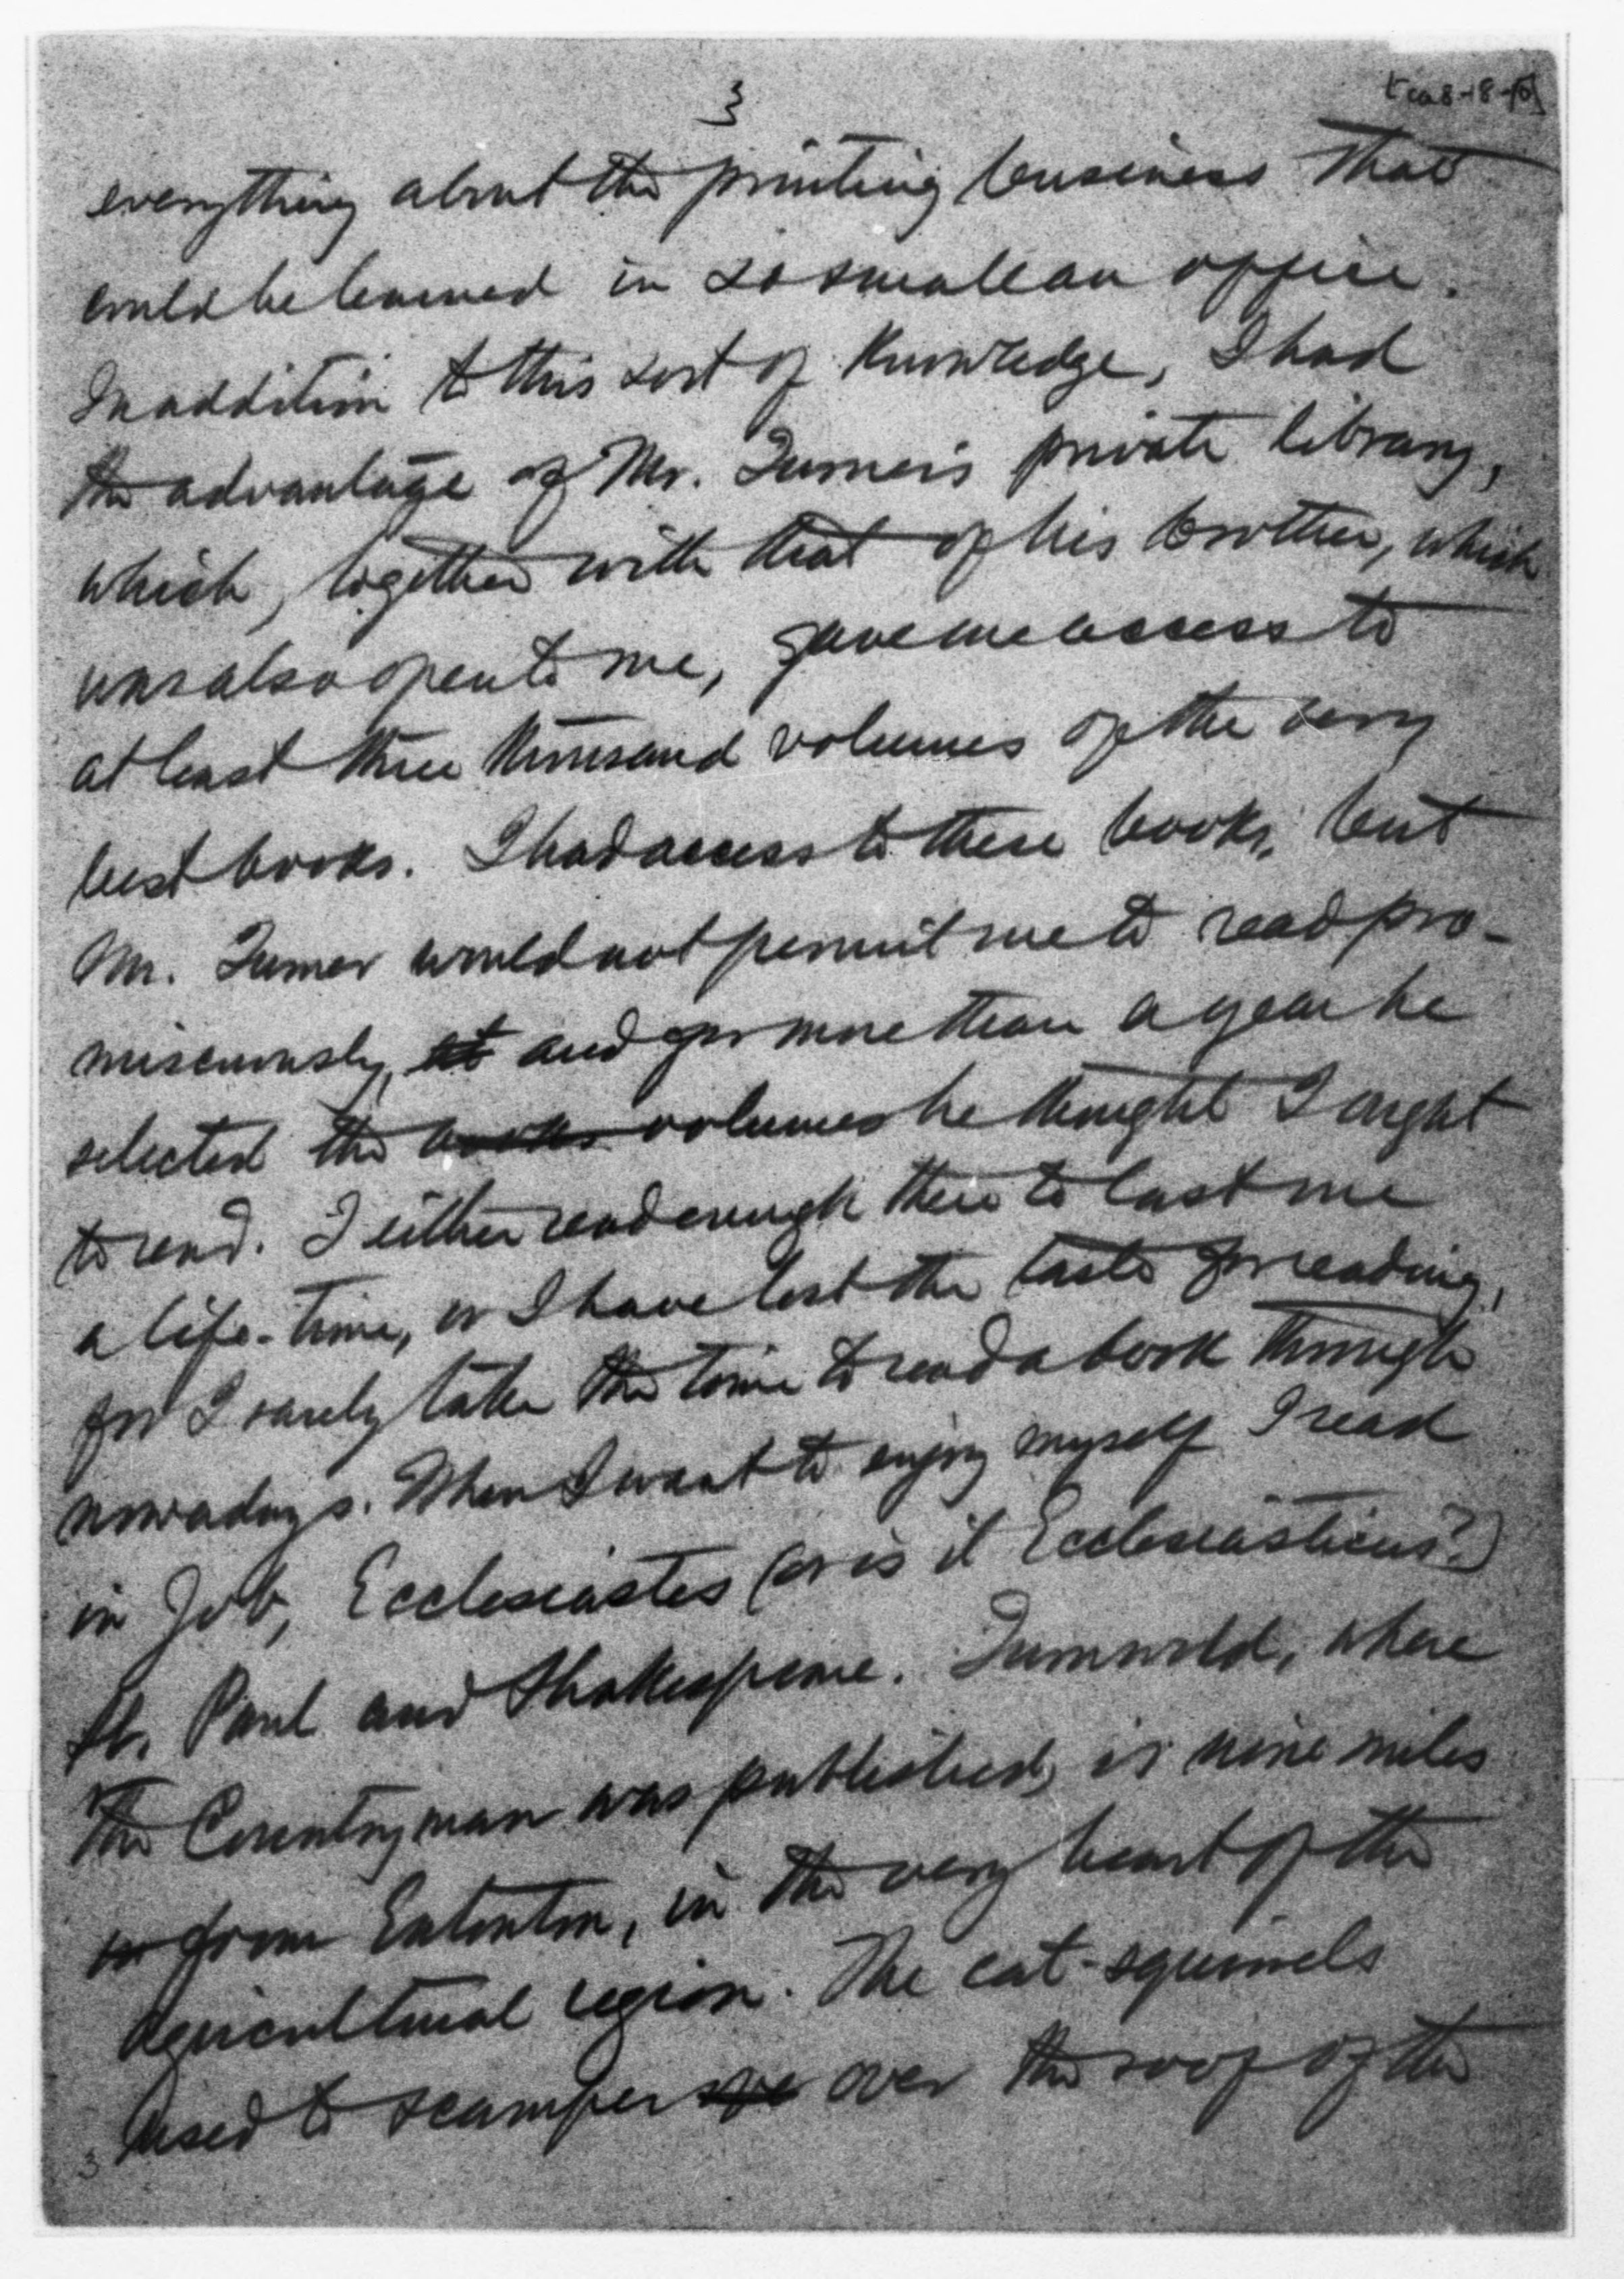 3
everything about the printing business that
could be learned in so small an office.
In addition to this sort of knowledge, I had
the advantage of Mr. Turner's private library,
which, together with that of his brother, which
was also open to me, gave me access to
at least three thousand volumes of the very
best books. I had access to these books, but
Mr. Turner would not permit me to read pro-
miscuously, and for more than a year he
selected the books volumes he thought I ought
to read. I either read enough there to last me
a life-time, or I have lost the taste for reading,
for I rarely take the time to read a book through
nowadays. When I want to enjoy myself I read
in Job, Ecclesiastes (or is it Ecclesiasticus?)
St. Paul and Shakespeare. Turnwold, where
The Countryman was published, is nine miles
from Eatonton, in the very heart of the
agricultural region. The cat-squirrels
used to scamper over the roof of the
3